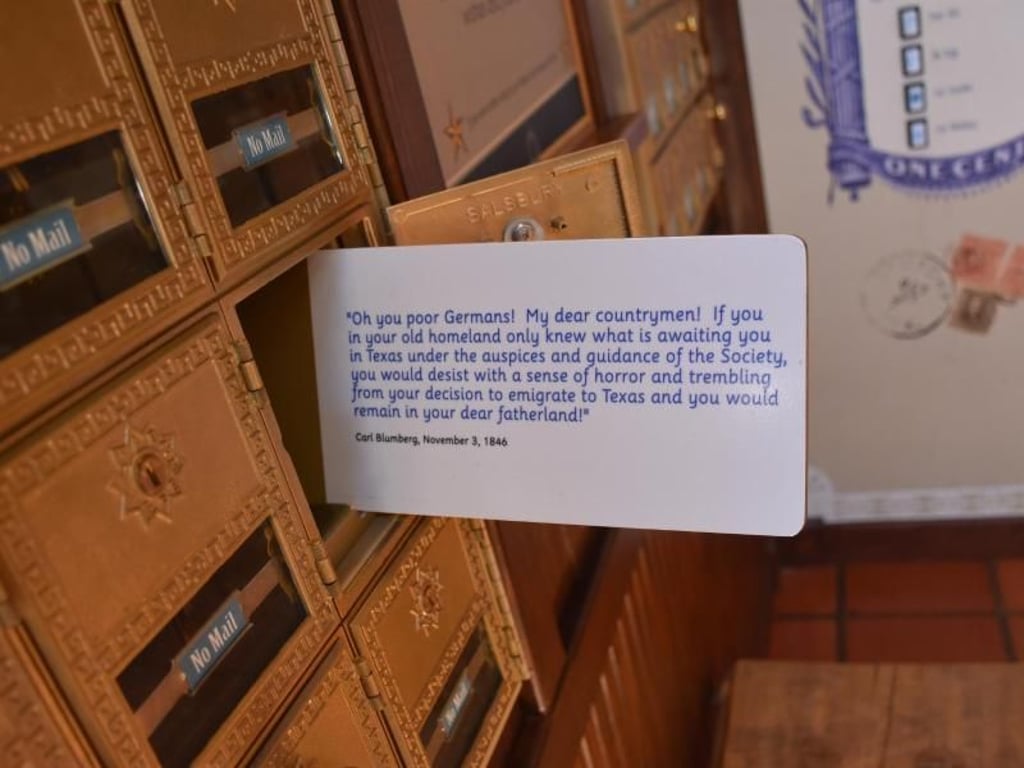 No Mail
No Mail
SALSBURY
ONE CEN
"Oh you poor Germans!  My dear countrymen!  If you
in your old homeland only knew what is awaiting you
in Texas under the auspices and guidance of the Society,
you would desist with a sense of horror and trembling
from your decision to emigrate to Texas and you would
remain in your dear fatherland!"
Carl Blumberg, November 3, 1846
No Mail
No Mail